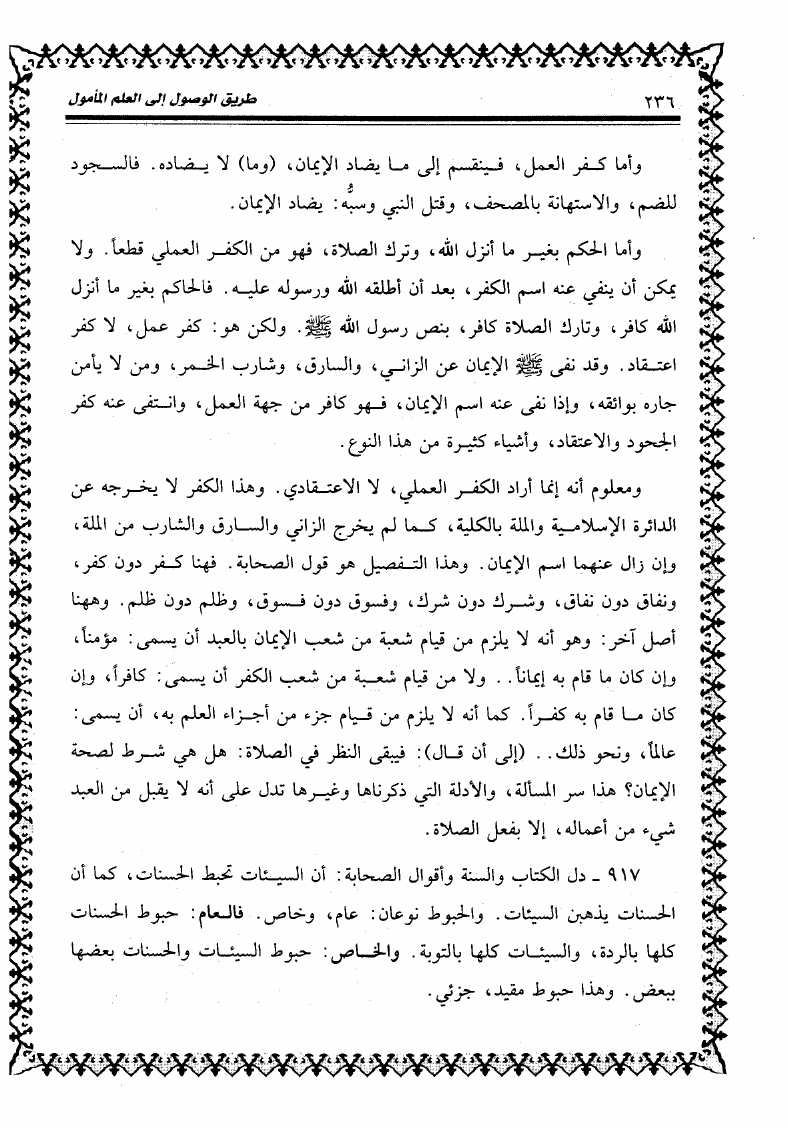 ٢٣٦ طريق الوصول إلى العلم المأمول
وأما كفر العمل، فينقسم إلى ما يضاد الإيمان، (وما) لا يضاده. فالسجود
للضم، والاستهانة بالمصحف، وقتل النبي وسبُّه: يضاد الإيمان.
وأما الحكم بغير ما أنزل الله، وترك الصلاة، فهو من الكفر العملي قطعاً. ولا
يمكن أن ينفي عنه اسم الكفر، بعد أن أطلقه الله ورسوله عليه. فالحاكم بغير ما أنزل
الله كافر، وتارك الصلاة كافر، بنص رسول الله ﷺ. ولكن هو: كفر عمل، لا كفر
اعتقاد. وقد نفى ﷺ الإيمان عن الزاني، والسارق، وشارب الخمر، ومن لا يأمن
جاره بوائقه، وإذا نفى عنه اسم الإيمان، فهو كافر من جهة العمل، وانتفى عنه كفر
الجحود والاعتقاد، وأشياء كثيرة من هذا النوع.
ومعلوم أنه إنما أراد الكفر العملي، لا الاعتقادي. وهذا الكفر لا يخرجه عن
الدائرة الإسلامية والملة بالكلية، كما لم يخرج الزاني والسارق والشارب من الملة،
وإن زال عنهما اسم الإيمان. وهذا التفصيل هو قول الصحابة. فهنا كفر دون كفر،
ونفاق دون نفاق، وشرك دون شرك، وفسوق دون فسوق، وظلم دون ظلم. وههنا
أصل آخر: وهو أنه لا يلزم من قيام شعبة من شعب الإيمان بالعبد أن يسمى: مؤمناً،
وإن كان ما قام به إيماناً.. ولا من قيام شعبة من شعب الكفر أن يسمى: كافراً، وإن
كان ما قام به كفراً. كما أنه لا يلزم من قيام جزء من أجزاء العلم به، أن يسمى:
عالماً، ونحو ذلك.. (إلى أن قال): فيبقى النظر في الصلاة: هل هي شرط لصحة
الإيمان؟ هذا سر المسألة، والأدلة التي ذكرناها وغيرها تدل على أنه لا يقبل من العبد
شيء من أعماله، إلا بفعل الصلاة.
٩١٧ - دل الكتاب والسنة وأقوال الصحابة: أن السيئات تحبط الحسنات، كما أن
الحسنات يذهبن السيئات. والحبوط نوعان: عام، وخاص. فالعام: حبوط الحسنات
كلها بالردة، والسيئات كلها بالتوبة. والخاص: حبوط السيئات والحسنات بعضها
ببعض. وهذا حبوط مقيد، جزئي.